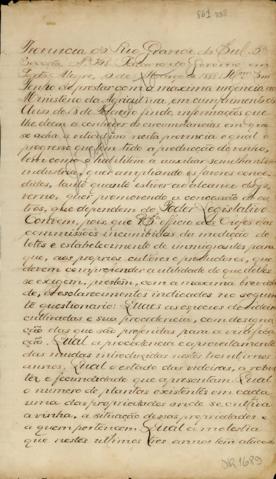 Provincia do Rio Grande do Sul 
Secção Nº Palacio do Governo em
Porto Alegre, de Março de 188
Tendo de prestar com a maxima urgencia ao
Ministerio da Agricultura, em cumprimento do
Aviso de de informações que
lhe deem a conhecer as circumstancias em que
se acha a viticultura nesta provincia e qual o
progresso que tem tido a producção do vinho,
bem como o habilitem a auxiliar semelhante
industria, quer ampliando os favores conce-
didos, tanto quanto estiver ao alcance do go-
verno, quer promovendo a concessão de ou-
tros, que dependem do Poder Legislativo
Convem, pois, que V.S. officie ás
commissões incumbidas da medição de
lotes e estabelecimento de immigrantes para
que, aos proprios cultores e productores, que
devem comprehender a utilidade do que delles
se exigem, prestem, com a maxima brevida-
de, os esclarecimentos indicados no seguin-
te questionario: Quaes as especies de videiras
cultivadas e sua procedencia, com designa-
ção das que são preferidas para a vinifica-
ção. Qual a procedencia e aproveitamento
das mudas introduzidas nestes ultimos
annos. Qual o estado das videiras, a robus-
tez e fecundidade que apresentam. Qual
o numero de plantas existentes em cada
uma das propriedades onde se cultiva
a vinha, a situação dessas propriedades e
a quem pertencem. Qual a molestia
que nestes ultimos tres annos tem atacado